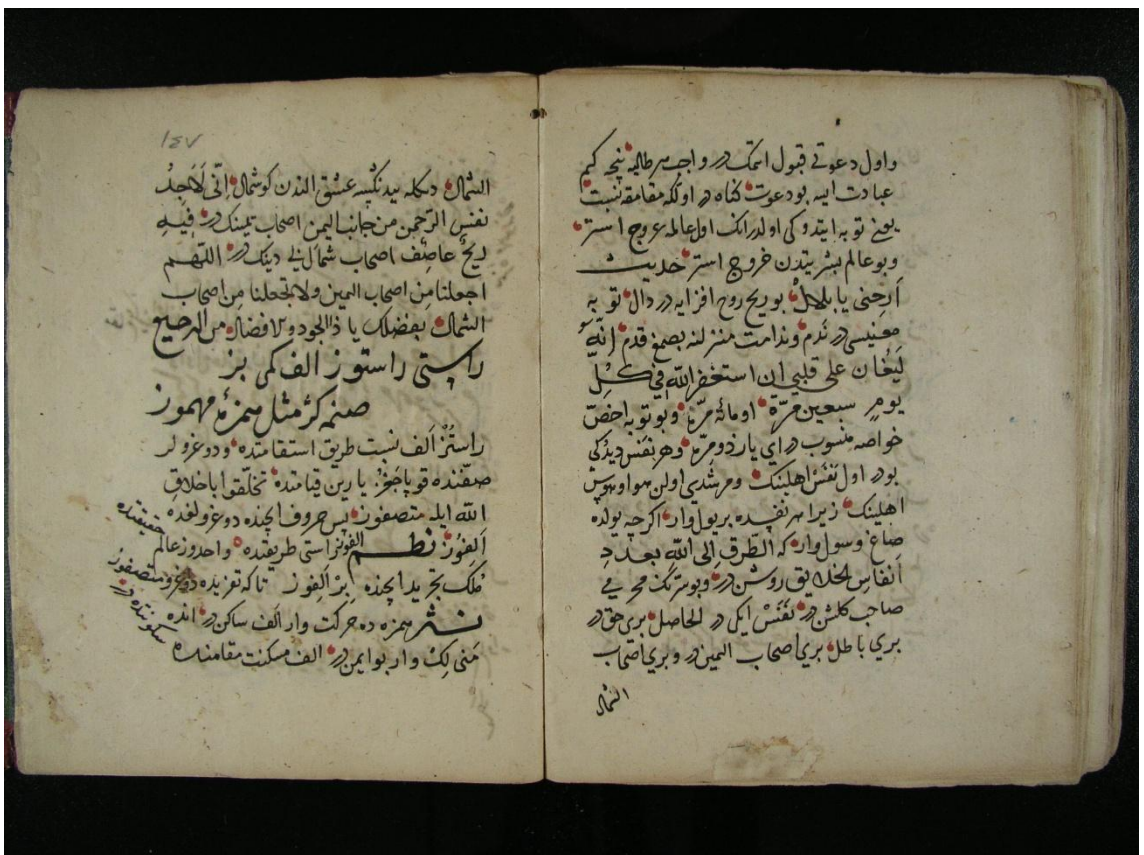 واول دعوتی قبول اتمك در واجب هر طالبه نیجه كم
عبادت ایسه بو دعوت كناه در اولكه مقامه نسبت
یعنی توبه ایتدوكی اولدر انك اول عالمه عروج استر
وبو عالم بشریتدن خروج استر حدیث
أرحنی یا بلال بو ریح روح افزایه در دال توبه
معنیسی در ندم وندامت منزلنه بصمغ قدم إنّه
لَیُغَان علی قلبی ان استغفر الله فی كلّ
یومٍ سبعین مرّة او مائة مرّة وبو توبه اخصّ
خواصه منسوب در ای یار ذو مرّة وهر نفس دیدكی
بودر اول نفس اهلینك ومرشدی اولن هوا وهوس
اهلینك زیرا هر نفیده بر یول وار اكرچه یولده
صاغ وصول وار كه الطرق إلی الله بعددِ
أنفاس الخلایق روشن در وبو سرّك محرمی
صاحب كلشن در نَفَس ایكی در الحاصل بری حق در
بری باطل بری اصحاب الیمین در وبری اصحاب
الشمال
١٤٧
الشمال دكله بیدنكیسه عشق الندن كوشمال إنّی لَأجِدُ
نفس الرّحمن من جانب الیمن اصحاب یمینك در فیه
ریحٌ عاصِف اصحاب شمال دینك در اللّهم
اجعلنا من اصحاب الیمین ولا تجعلنا من اصحاب
الشمال بفضلك یا ذا الجود والافضال من المرصیع
راستی راستوز الف كمی بز
صنمه كژ مثل همزهٔ مهموز
راستُز اَلف نسبت طریق استقامتده ودوغرولر
صفّنده قوپاجغز یارین قیامتده تخلّقوا باخلاقِ
الله ایله متصفوز پس حروف ایچنده دوغرولغده
اَلِفوُز نظم الفوز راستی طریقنده واحدوز عالم حقیقتده
مُلك تجرید ایچنده بِرْ اَلِفوز تا كه تفریده دوغرو متصفوز
نثر همزه ده حركت وار اَلف ساكن در انده سكونتده در
مَنی لِك وار بو ایمن در الف مسكنت مقامنده